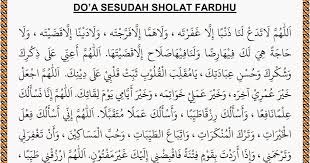 DO'A SESUDAH SHOLAT FARDHU
اَللّٰهُمَّ لَاتَدَعْ لَنَا ذَنْبًا اِلَّا غَفَرْتَهُ ، وَلَاهَمًّا اِلَّافَرَّجْتَهُ ، وَلَادَيْنًا اِلَّاقَضَيْتَهُ ، وَلَا
حَاجَةً هِيَ لَكَ فِيْهَارِضًا وَلَنَافِيْهَاصَلَاحٌ اِلَّاقَضَيْتَهَا. اَللّٰهُمَّ اَعِنِّي عَلٰى ذِكْرِكَ
وَشُكْرِكَ وَحُسْنِ عِبَادَتِكَ ، يَامُقَلِّبَ الْقُلُوْبِ ثَبِّتْ قَلْبِيْ عَلٰى دِيْنِكَ. اَللّٰهُمَّ اجْعَلْ
خَيْرَ عُمُرِيْ اٰخِرَهُ ، وَخَيْرَ عَمَلِيْ خَوَاتِمَهُ ، وَخَيْرَ اَيَّامِيْ يَوْمَ لِقَائِكَ. اَللّٰهُمَّ اِنِّيْ اَسْأَلُكَ
عِلْمًانَافِعًا ، وَاَسْأَلُكَ رِزْقًاطَيِّبًا ، وَاَسْأَلُكَ عَمَلًا مُتَقَبَّلًا. اَللّٰهُمَّ اِنِّيْ اَسْأَلُكَ فِعْلَ
الْخَيْرَاتِ ، وَتَرْكَ الْمُنْكَرَاتِ ، وَاتِّبَاعَ الطَّيِّبَاتِ ، وَحُبَّ الْمَسَاكِيْنَ ، وَاَنْ تَغْفِرَلِيْ
وَتَرْحَمَنِيْ ، وَاِذَا اَرَدْتَ بِقَوْمٍ فِتْنَةً فَاقْبِضْنِيْ اِلَيْكَ غَيْرَمَفْتُوْنٍ. اَللّٰهُمَّ ارْزُقْنِيْ طَيِّبًا ،